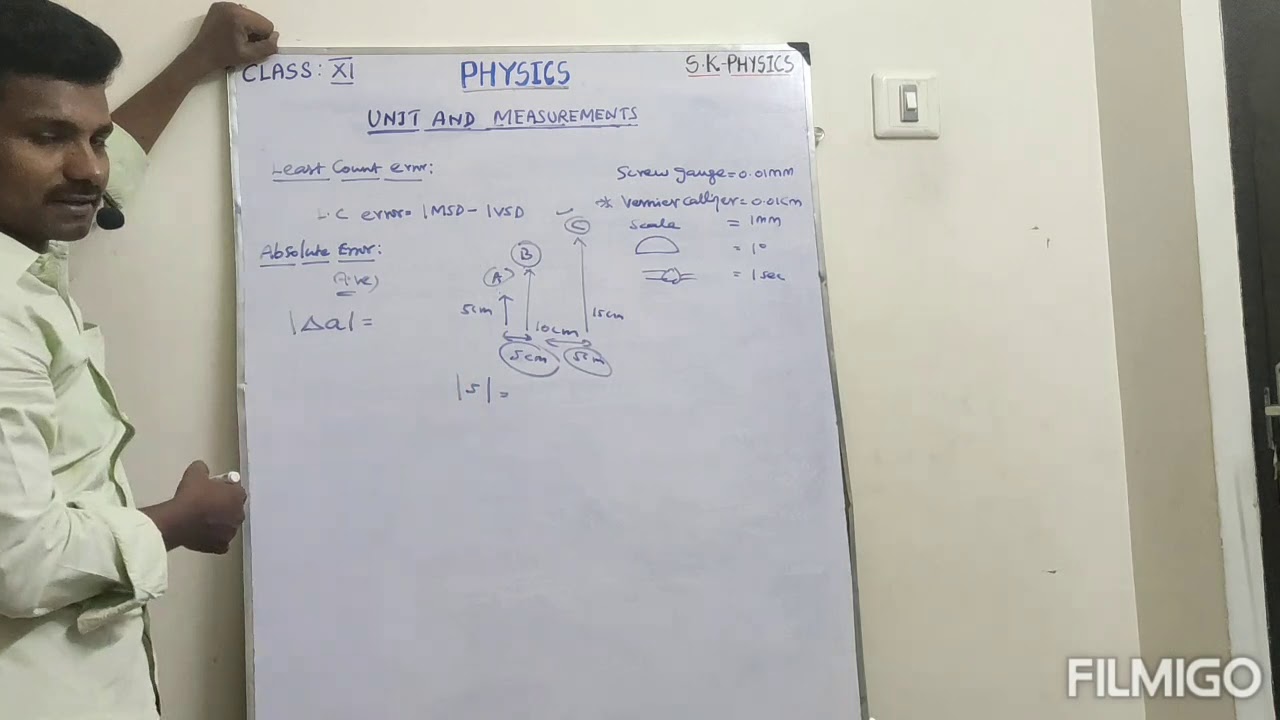 CLASS: XI
PHYSICS
S.K-PHYSICS
UNIT AND MEASUREMENTS
Least Count error:
L.C error = 1MSD - 1VSD
Screw gauge = 0.01mm
* Vernier = 0.01cm
Scale = 1mm
= 1°
= 1 sec
Absolute Error:
(A.ve)
|Δa| =
A
B
C
5cm
10cm
15cm
5cm
5cm
|5| =
FILMIGO